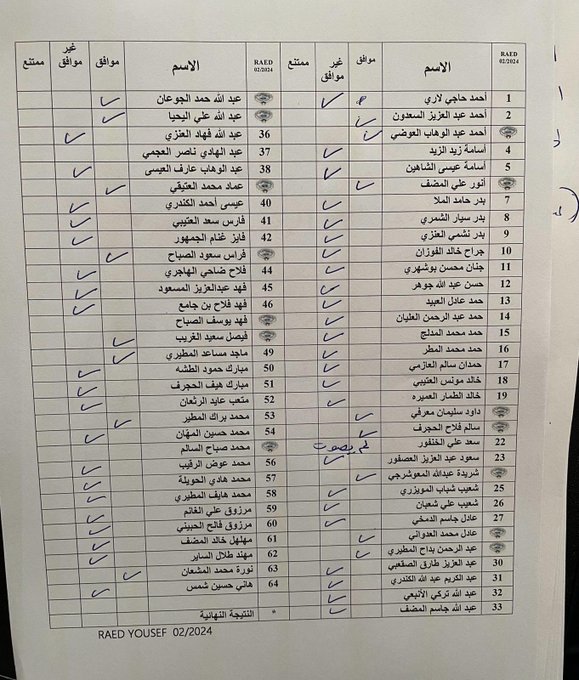 RAED 02/2024 الاسم موافق غير موافق ممتنع
1 أحمد حاجي لاري
2 أحمد عبد العزيز السعدون
أحمد عبد الوهاب العوضي
4 أسامة زيد الزيد
5 أسامة عيسى الشاهين
أنور علي المضف
7 بدر حامد الملا
8 بدر سيار الشمري
9 بدر نشمي العنزي
10 جراح خالد الفوزان
11 جنان محسن بوشهري
12 حسن عبد الله جوهر
13 حمد عادل العبيد
14 حمد عبد الرحمن العليان
15 حمد محمد المدلج
16 حمد محمد المطر
17 حمدان سالم العازمي
18 خالد مونس العتيبي
19 خالد الطمار العميره
داود سليمان معرفي
سالم فلاح الحجرف
22 سعد علي الخنفور لم يصوت
23 سعود عبد العزيز العصفور
شريدة عبدالله المعوشرجي
25 شعيب شباب المويزري
26 شعيب علي شعبان
27 عادل جاسم الدمخي
عادل محمد العدواني
عبد الرحمن بداح المطيري
30 عبد العزيز طارق الصقعبي
31 عبد الكريم عبد الله الكندري
32 عبد الله تركي الأنبعي
33 عبد الله جاسم المضف
RAED 02/2024 الاسم موافق غير موافق ممتنع
عبد الله حمد الجوعان
عبد الله علي اليحيا
36 عبد الله فهاد العنزي
37 عبد الهادي ناصر العجمي
38 عبد الوهاب عارف العيسى
عماد محمد العتيقي
40 عيسى أحمد الكندري
41 فارس سعد العتيبي
42 فايز غنام الجمهور
فراس سعود الصباح
44 فلاح ضاحي الهاجري
45 فهد عبدالعزيز المسعود
46 فهد فلاح بن جامع
فهد يوسف الصباح
فيصل سعيد الغريب
49 ماجد مساعد المطيري
50 مبارك حمود الطشه
51 مبارك هيف الحجرف
52 متعب عايد الرثعان
53 محمد براك المطير
54 محمد حسين المهان
محمد صباح السالم
56 محمد عوض الرقيب
57 محمد هادي الحويلة
58 محمد هايف المطيري
59 مرزوق علي الغانم
60 مرزوق فالح الحبيني
61 مهلهل خالد المضف
62 مهند طلال الساير
63 نورة محمد المشعان
64 هاني حسين شمس
* النتيجة النهائية
RAED YOUSEF 02/2024